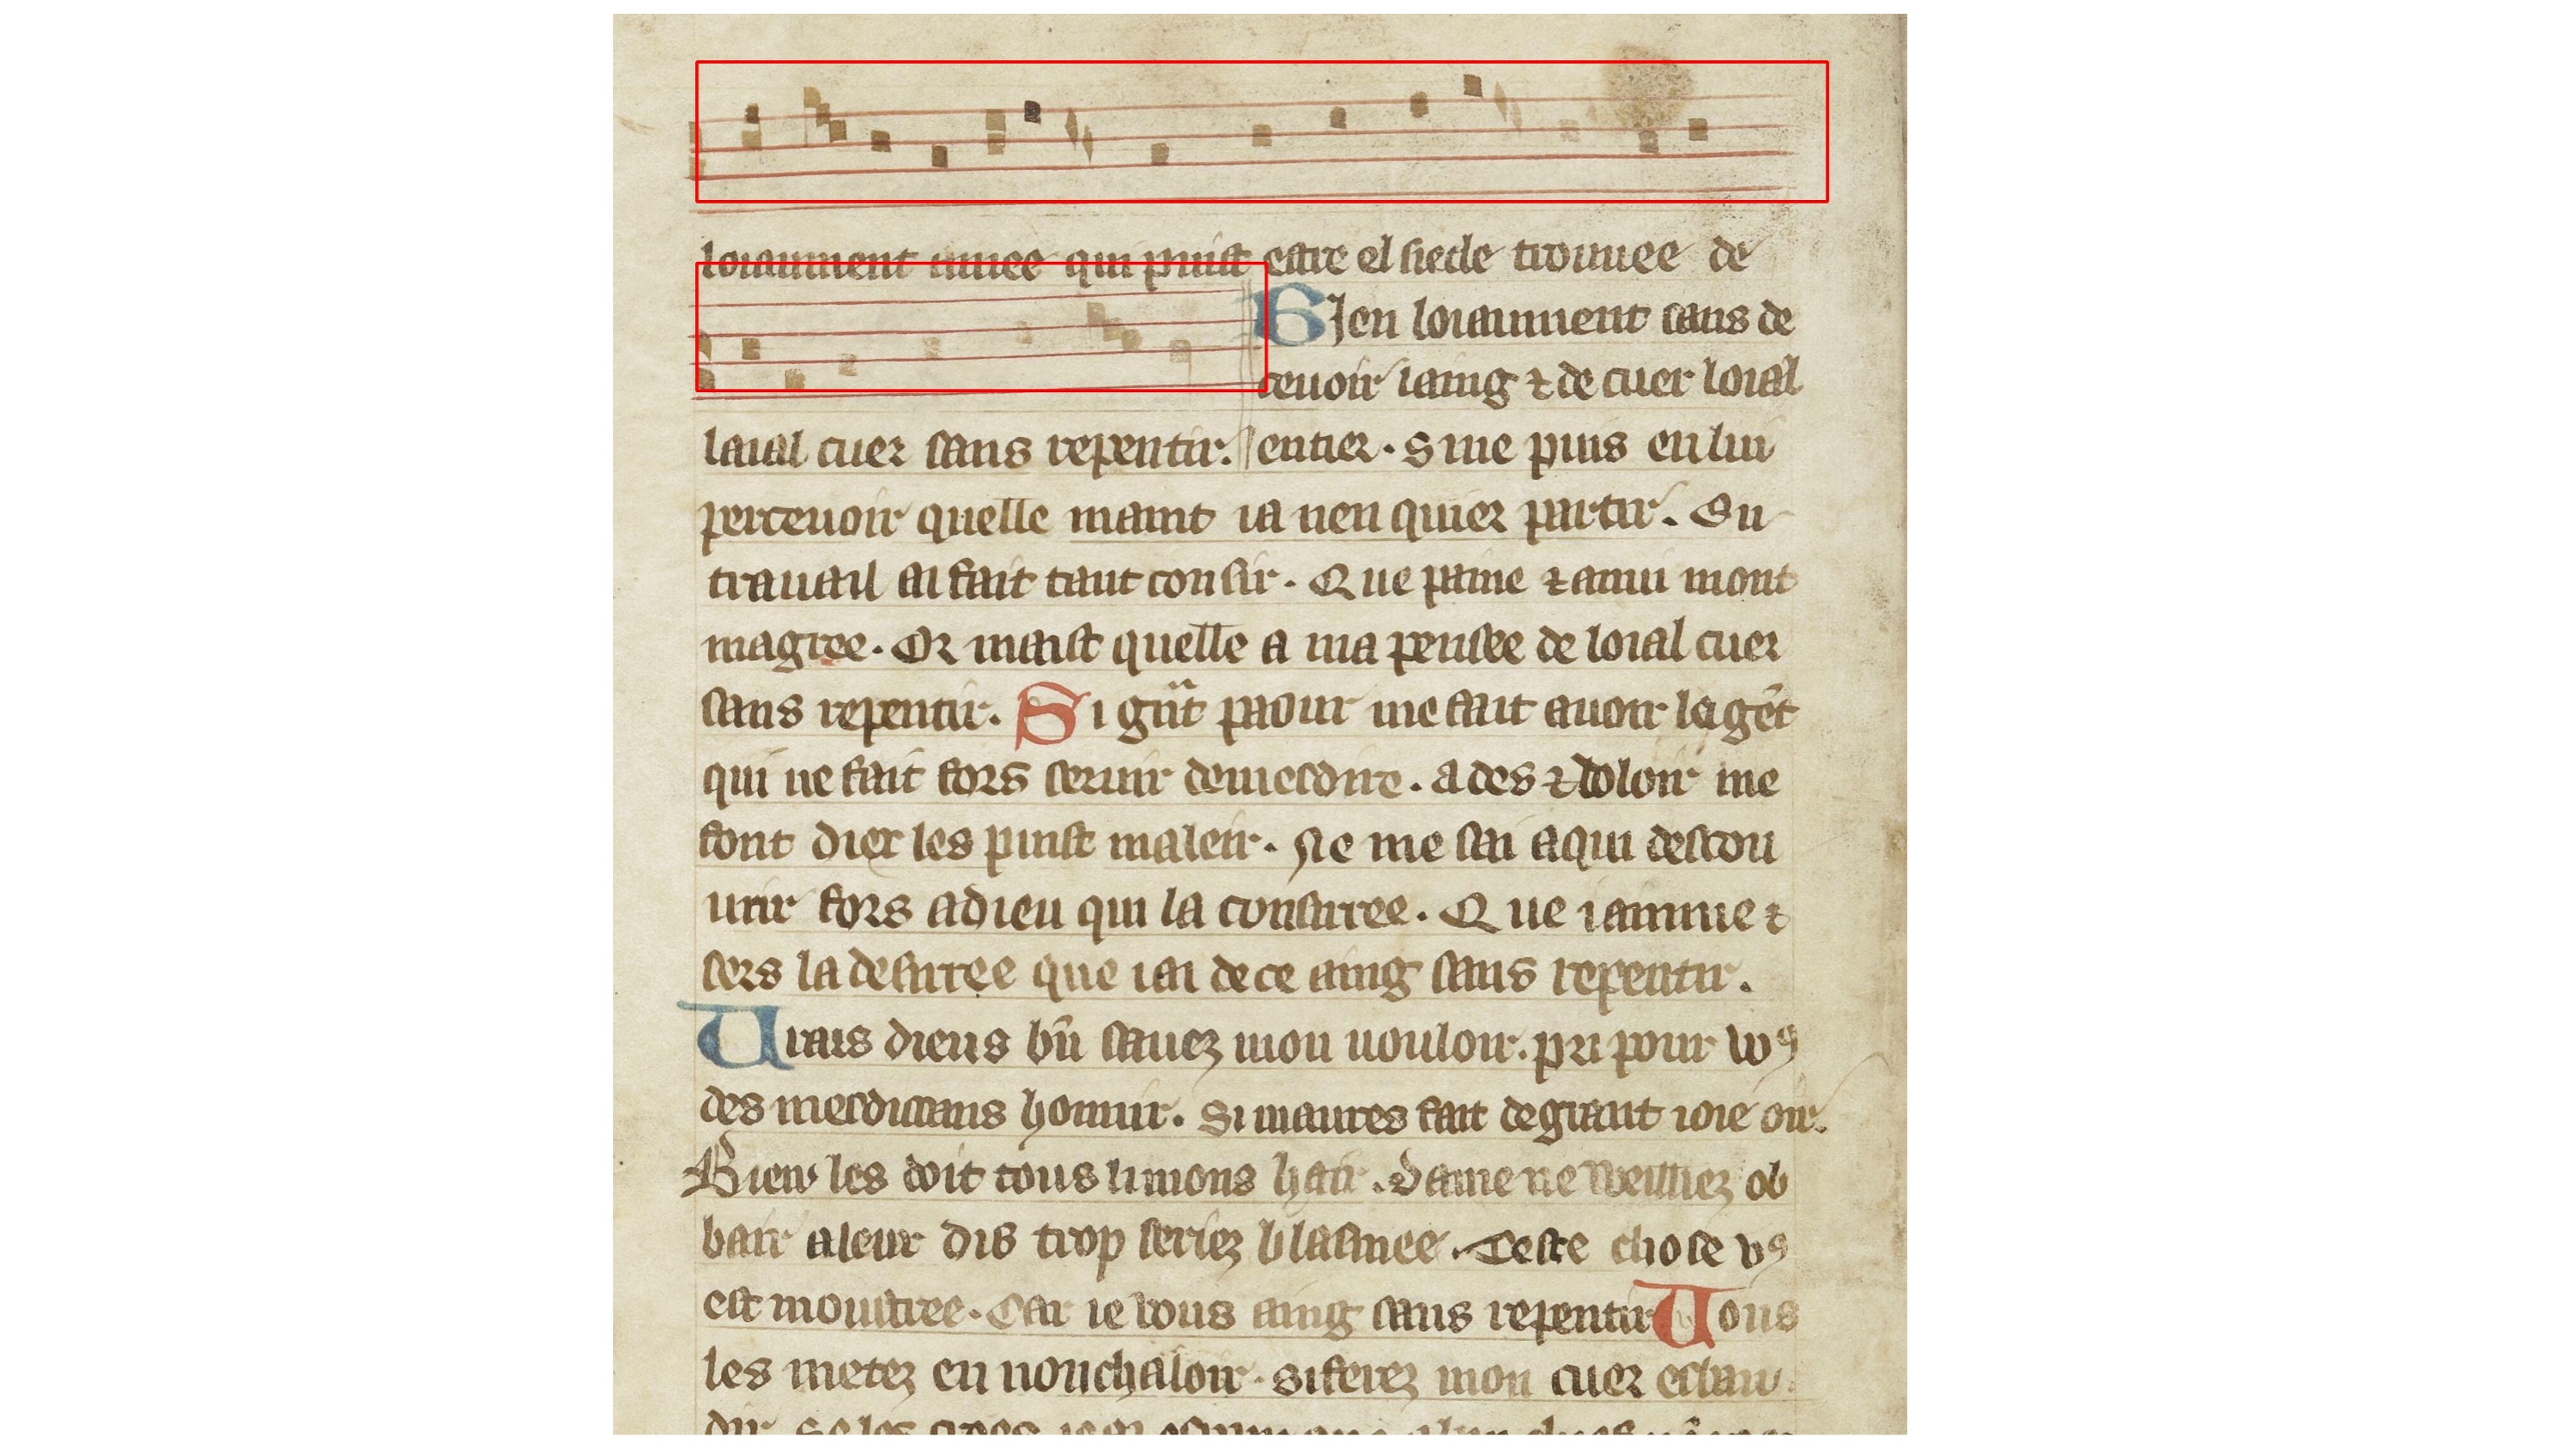 loiaument amee qui puist estre el siecle trouuee de
laial cuer sans repentir.
Bien loiaument sans de
ceuoir laing ⁊ de cuer loial
entier. Sine puis enlui
perceuoir quelle maint ia nen quier partir. En
trauail ai fait tant consir. Que paine ⁊ anui mont
magree. Or maist quelle a ma pensee de loial cuer
sans repentir. Si gnt paour me fait auoir la gēt
qui ne fait fors seruir demesdire. ades ⁊ doloir me
font diex les puist maleir. Ne me sai a qui descou
urir fors a dieu qui la consiree. Que iaimme ⁊
sers la desirree que iai de ce aing sans repentir.
Vrais dieus bn̄ sauez mon uouloir. pri pour voꝰ
des mesdisans honnir. Si maures fait de grant ioie oir.
Bien les doit tous li mons hair. Dame ne weilliez ob
bair a leur dis trop seriez blasmee. Ceste chose vꝰ
est moustree. Car ie vous aing sans repentir Tous
les metez en nonchaloir. si ferez mon cuer esbau
dir